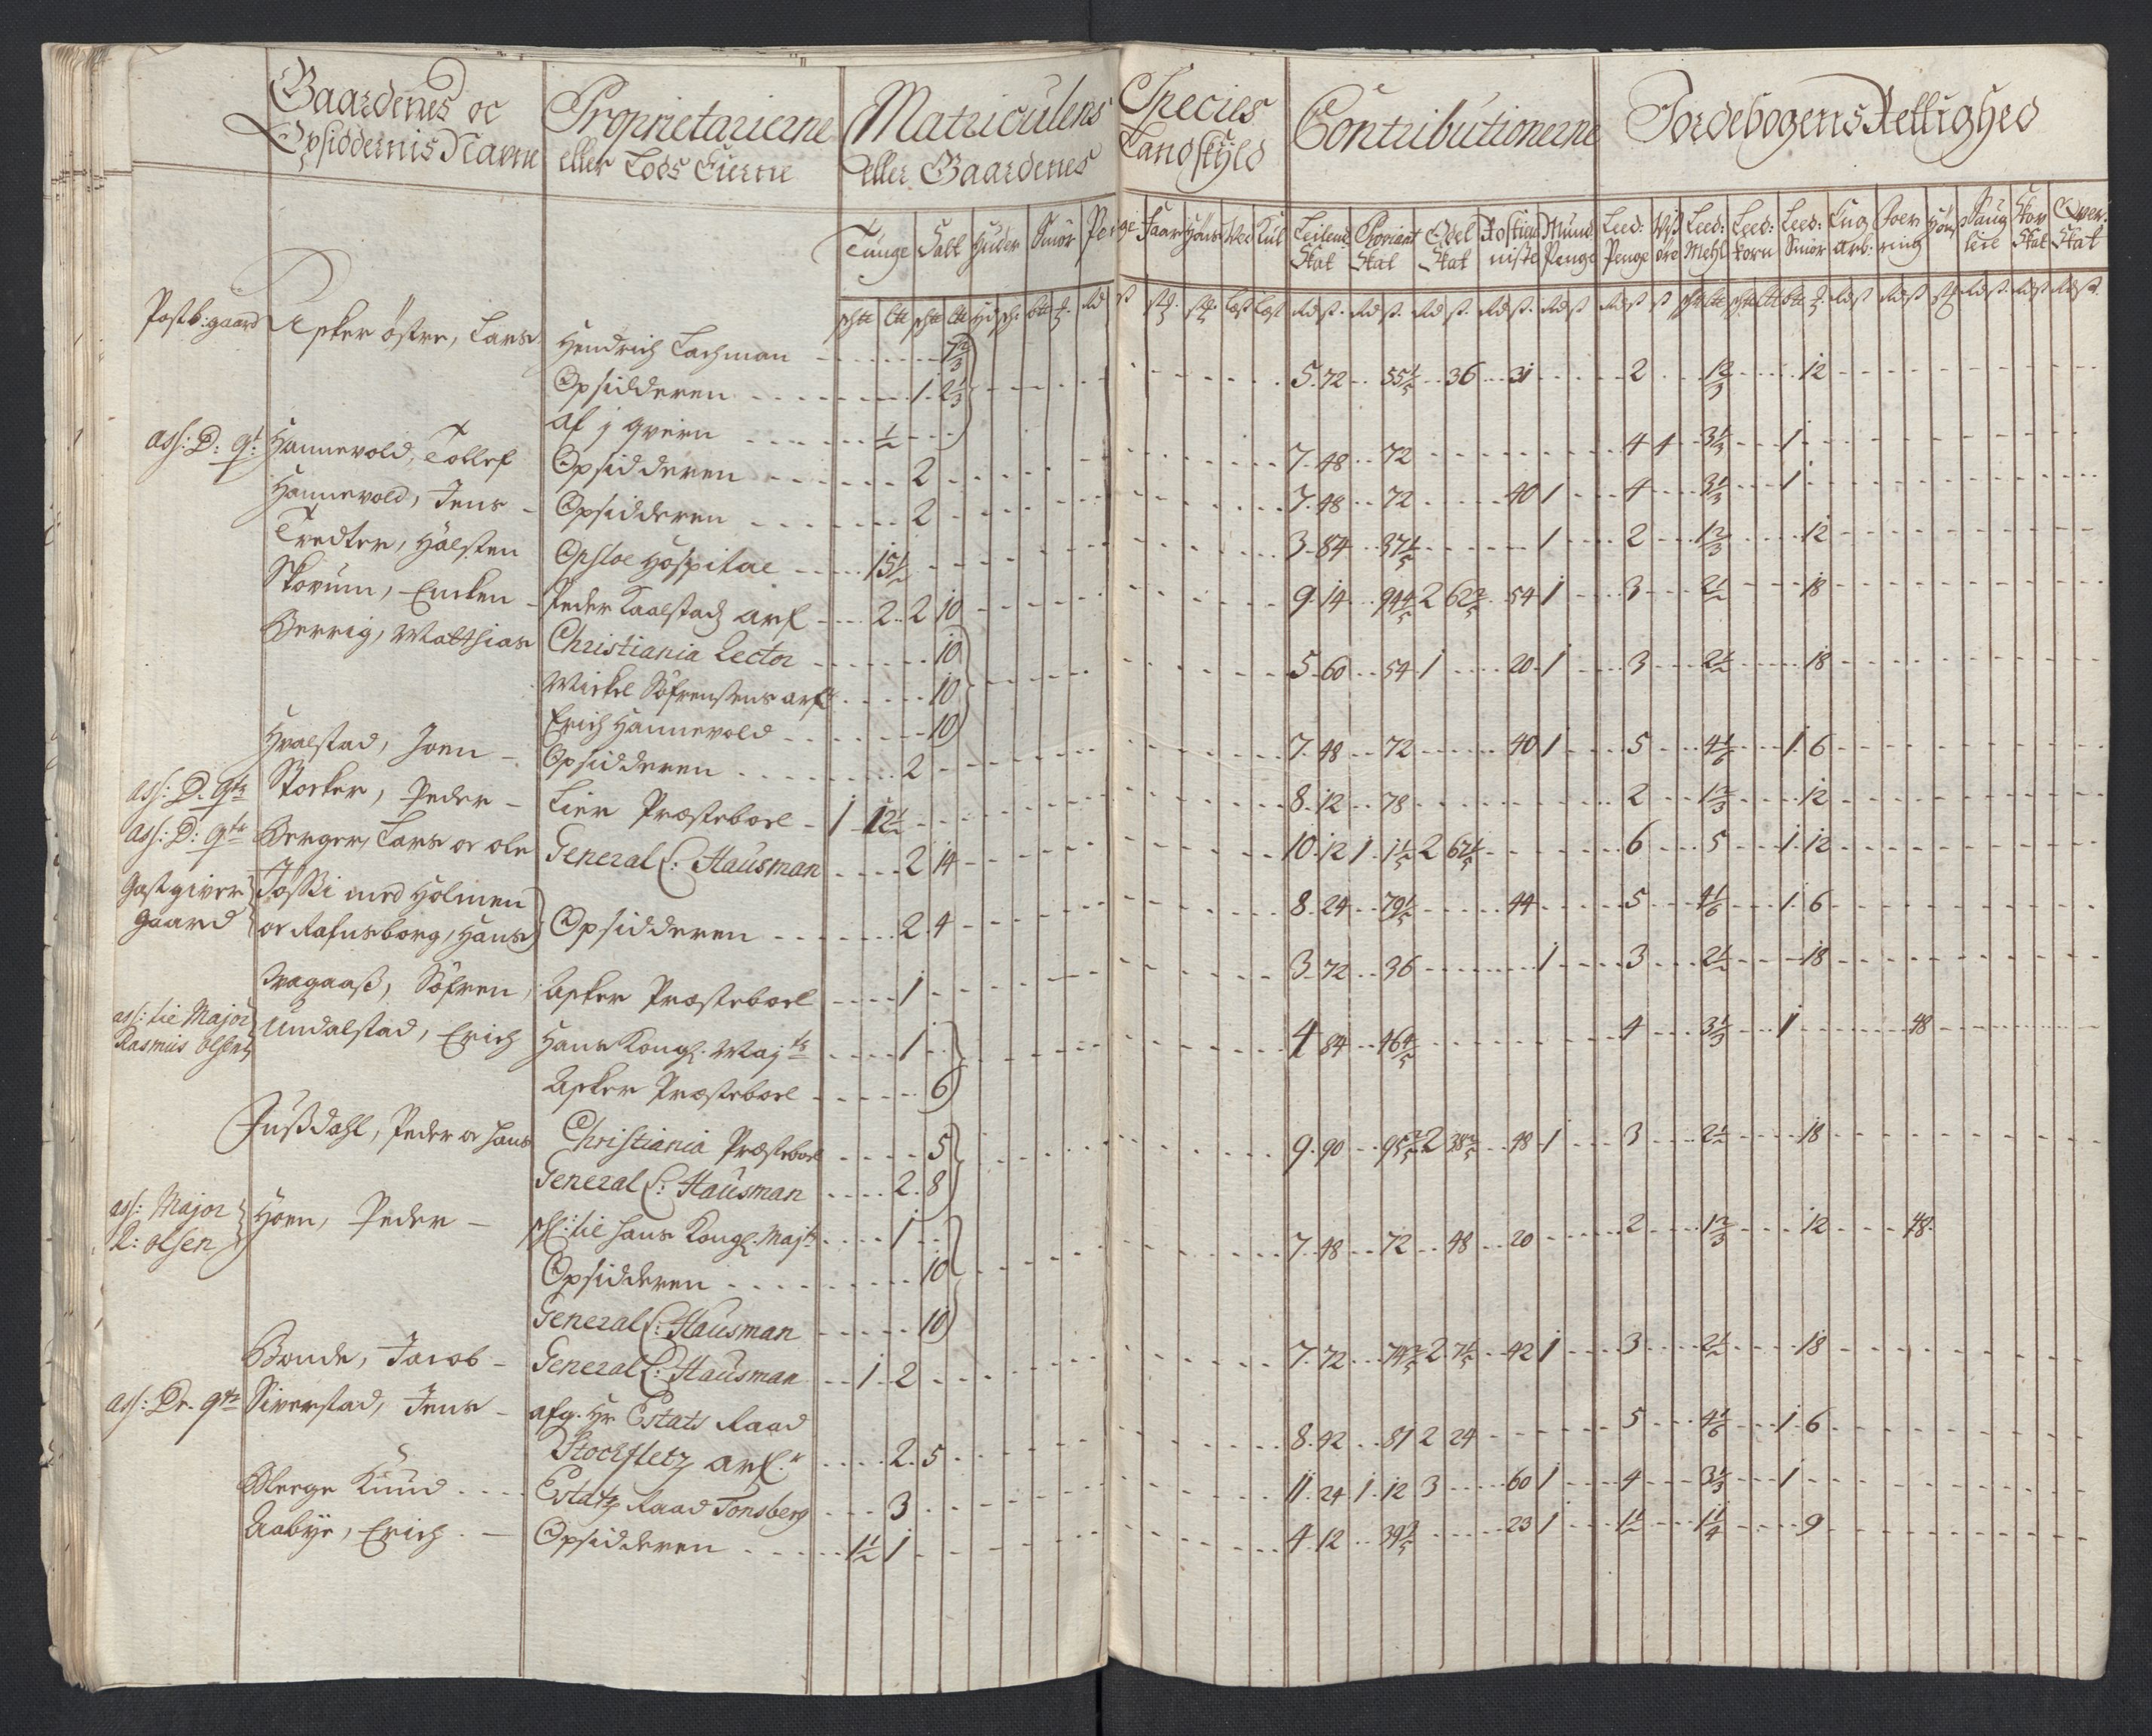 Gaardenes oc
Opsiddernis Navne
Proprietarierne
eller Lods Eierne
Matriculens
eller Gaardenes
Species
Landskyld
Contributionerne
Jordebogens Rettighed
Tunge Salt Huder Smör Penge Faar Höns Ved Kul
Leilend: Skat Proviant Skat Odel Skat Rostieniste Mund Penge Leed: Penge Viß öre Leed: Mehl Leed: korn Leed: Smör Aug arb: Foer ring Höns Saug leie Skov Skat Qver: Skat
Postb:gaard Asker östre, Lars Hendrich Lachman 7 2/3
Opsidderen 1 2 1/3 5 72 55 1/5 36 31 2 1 2/3 12
af j qvern 1/2
ass: D: qt: Hannevold, Tollef Opsidderen 2 7 48 72 4 4 3 1/3 1
Hannevold, Jens Opsidderen 2 7 48 72 40 1 4 3 1/3 1
Tredter, Halsten Opsloe Hospital 15 1/2 3 84 37 1/5 1 2 1 2/3 12
Skorum, Encken Peder Kaalstads arf 2 2 10 9 14 94 4/5 2 62 2/5 54 1 3 2 1/2 18
Berrig, Matthias Christiania Lector 10 5 60 54 1 20 1 3 2 1/2 18
Mickel Söfrensens arf 10
Erich Hannevold 10
Hvalstad, Joen Opsidderen 2 7 48 72 40 1 5 4 1/6 1 6
ass: D. qtr Stocker, Peder Lier Præstebool 1 12 1/2 8 12 78 2 1 2/3 12
ass: D: qtr Berger, Lars oc ole General L: Hausman 2 14 10 12 1 1 1/5 2 67 1/5 6 5 1 12
Gastgiver Jössi med Holmen
gaard oc Rafnsborg, Hans Opsidderen 2 4 8 24 79 1/5 44 5 4 1/6 1 6
Dragaaß, Söfren Asker Præstebool 1 3 72 36 1 3 2 1/2 18
ass: til Major Undalstad, Erich Hans Kongl. Majts 1 4 84 46 4/5 4 3 1/3 1 48
Rasmus olsen
Asker Præstebool 6
Jußdahl, Peder oc Hans Christiania Præstebool 5 9 90 95 2/5 2 38 2/5 48 1 3 2 1/2 18
General L: Hausman 2 8
ass: Major Hoen, Peder schl: til hans Kongl. Majts 1 7 48 72 48 20 2 1 2/3 12 48
R: olsen
Opsidderen 10
General L: Hausman 10
Bonde, Jacob General L: Hausman 1 2 7 72 74 2/5 2 7 1/5 42 1 3 2 1/2 18
ass: Dr. qtr Siverstad, Jens afg. Hr Estats Raad
Stochfletz arf: 2 5 8 42 81 2 24 5 4 1/6 1 6
Berge Knud Estatz Raad Tonsberg 3 11 24 1 12 3 60 1 4 3 1/3 1
Aabye, Erich Opsidderen 1 1/2 1 4 12 39 3/5 23 1 1 1/2 1 1/4 9